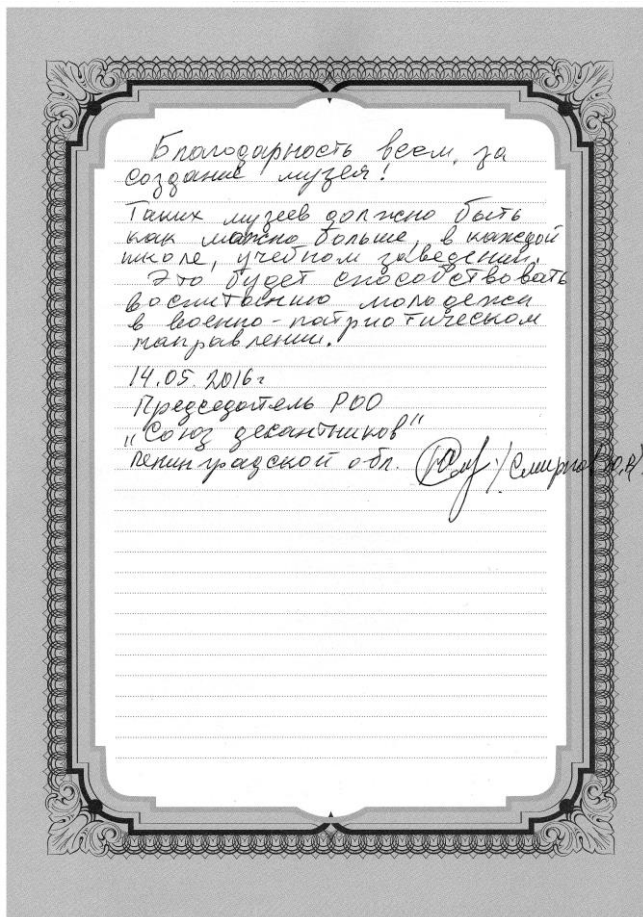 Благодарность всем, за
создание музея!
Таких музеев должно быть
как можно больше, в каждой
школе, учебном заведении.
Это будет способствовать
воспитанию молодежи
в военно-патриотическом
направлении.
14.05.2016г
Председатель РОО
"Союз десантников"
Ленинградской обл. /Смирнов Ю.А/